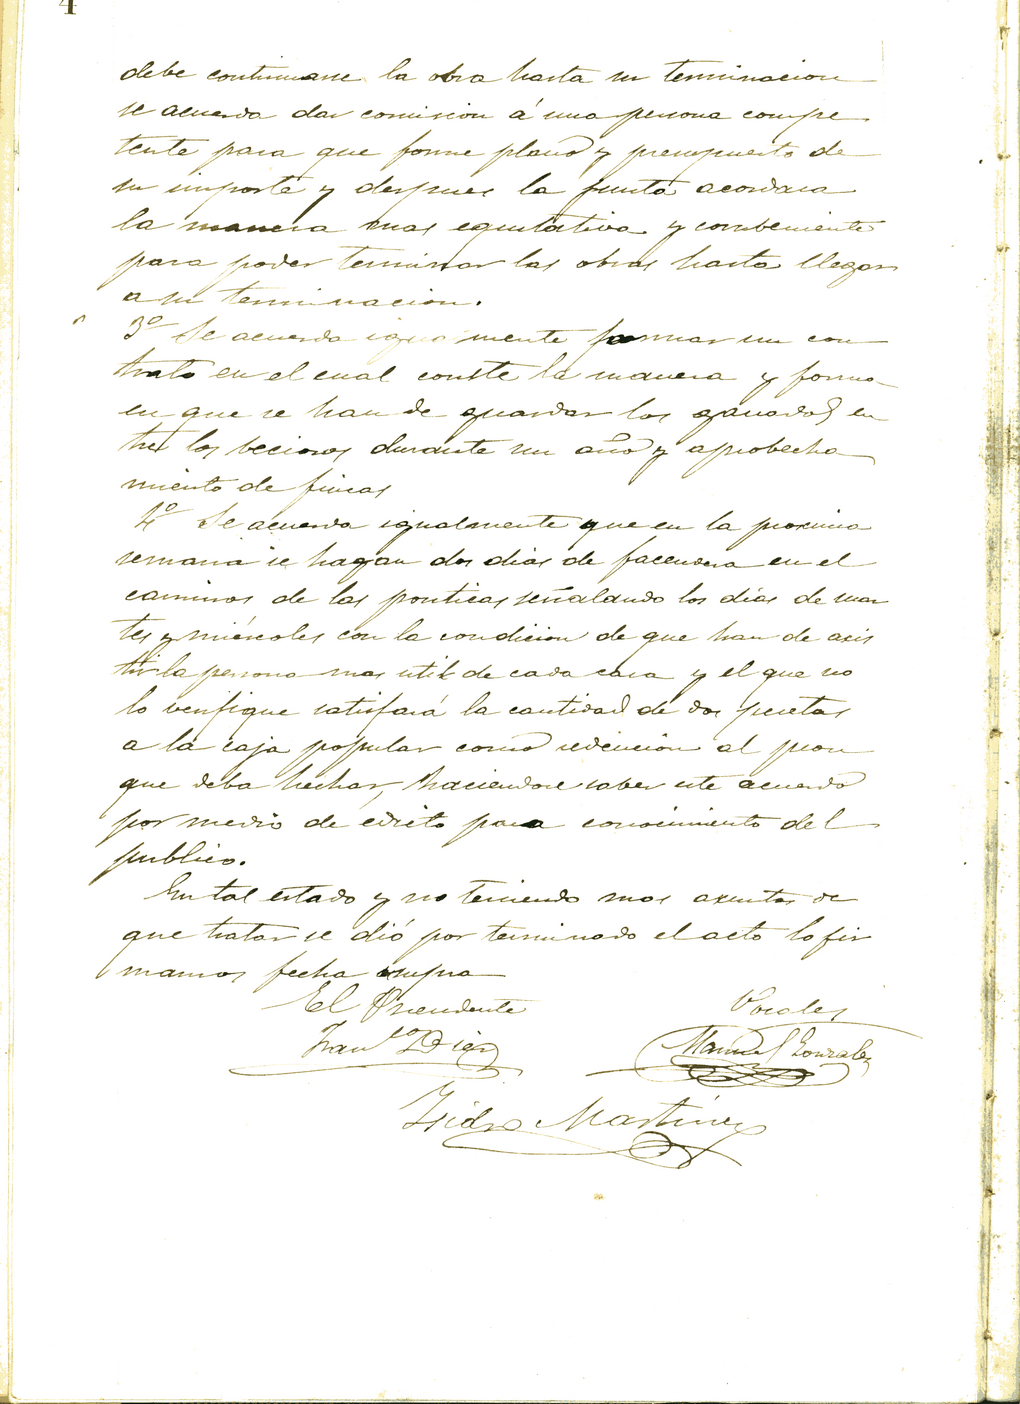 4
debe continuarse la obra hasta su terminacion
se acuerda dar comision á una persona compe
tente para que forme plano y presupuesto de
su importe y despues la Junta acordara
la manera mas equitativa y combeniente
para poder terminar las obras hasta llegar
a su terminacion.
3º Se acuerda igualmente formar un con
trato en el cual conste la manera y forma
en que se han de guardar los ganados en
tre los becinos durante un año y aprobecha
miento de fincas
4º Se acuerda igualmente que en la procsima
semana se hagan dos dias de facendera en el
caminos de las ponticas señalando los dias de mar
tes y miércoles con la condicion de que han de asis
tir la persona mas util de cada casa y el que no
lo verifique satisfará la cantidad de dos pesetas
a la caja popular como redencion al peon
que deba hechar, haciendose saber este acuerdo
por medio de edicto para conocimiento del
publico.
En tal estado y no teniendo mas asuntos de
que tratar se dió por terminado el acto lo fir
mamos fecha supra
El Presidente
Vocales
Franco Diez
Manuel Gonzalez
Isidro Martinez